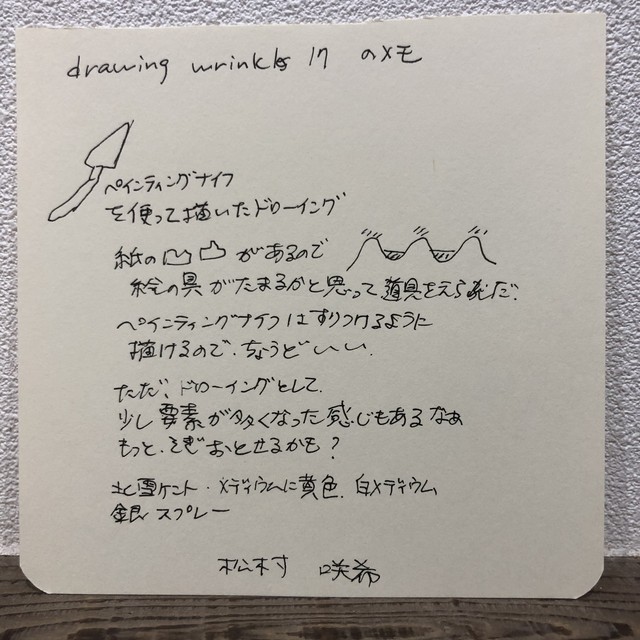 drawing wrinkles 17 のメモ
ペインティングナイフ
を使って描いたドローイング
紙の凹凸があるので
絵の具がたまるかと思って道具をえらんだ。
ペインティングナイフはすりつけるように
描けるので、ちょうどいい。
ただ、ドローイングとして、
少し要素が多くなった感じもあるなぁ
もっと、そぎおとせるかも?
北雪ケント・メディウムに黄色、白メディウム
銀スプレー
松村 咲希